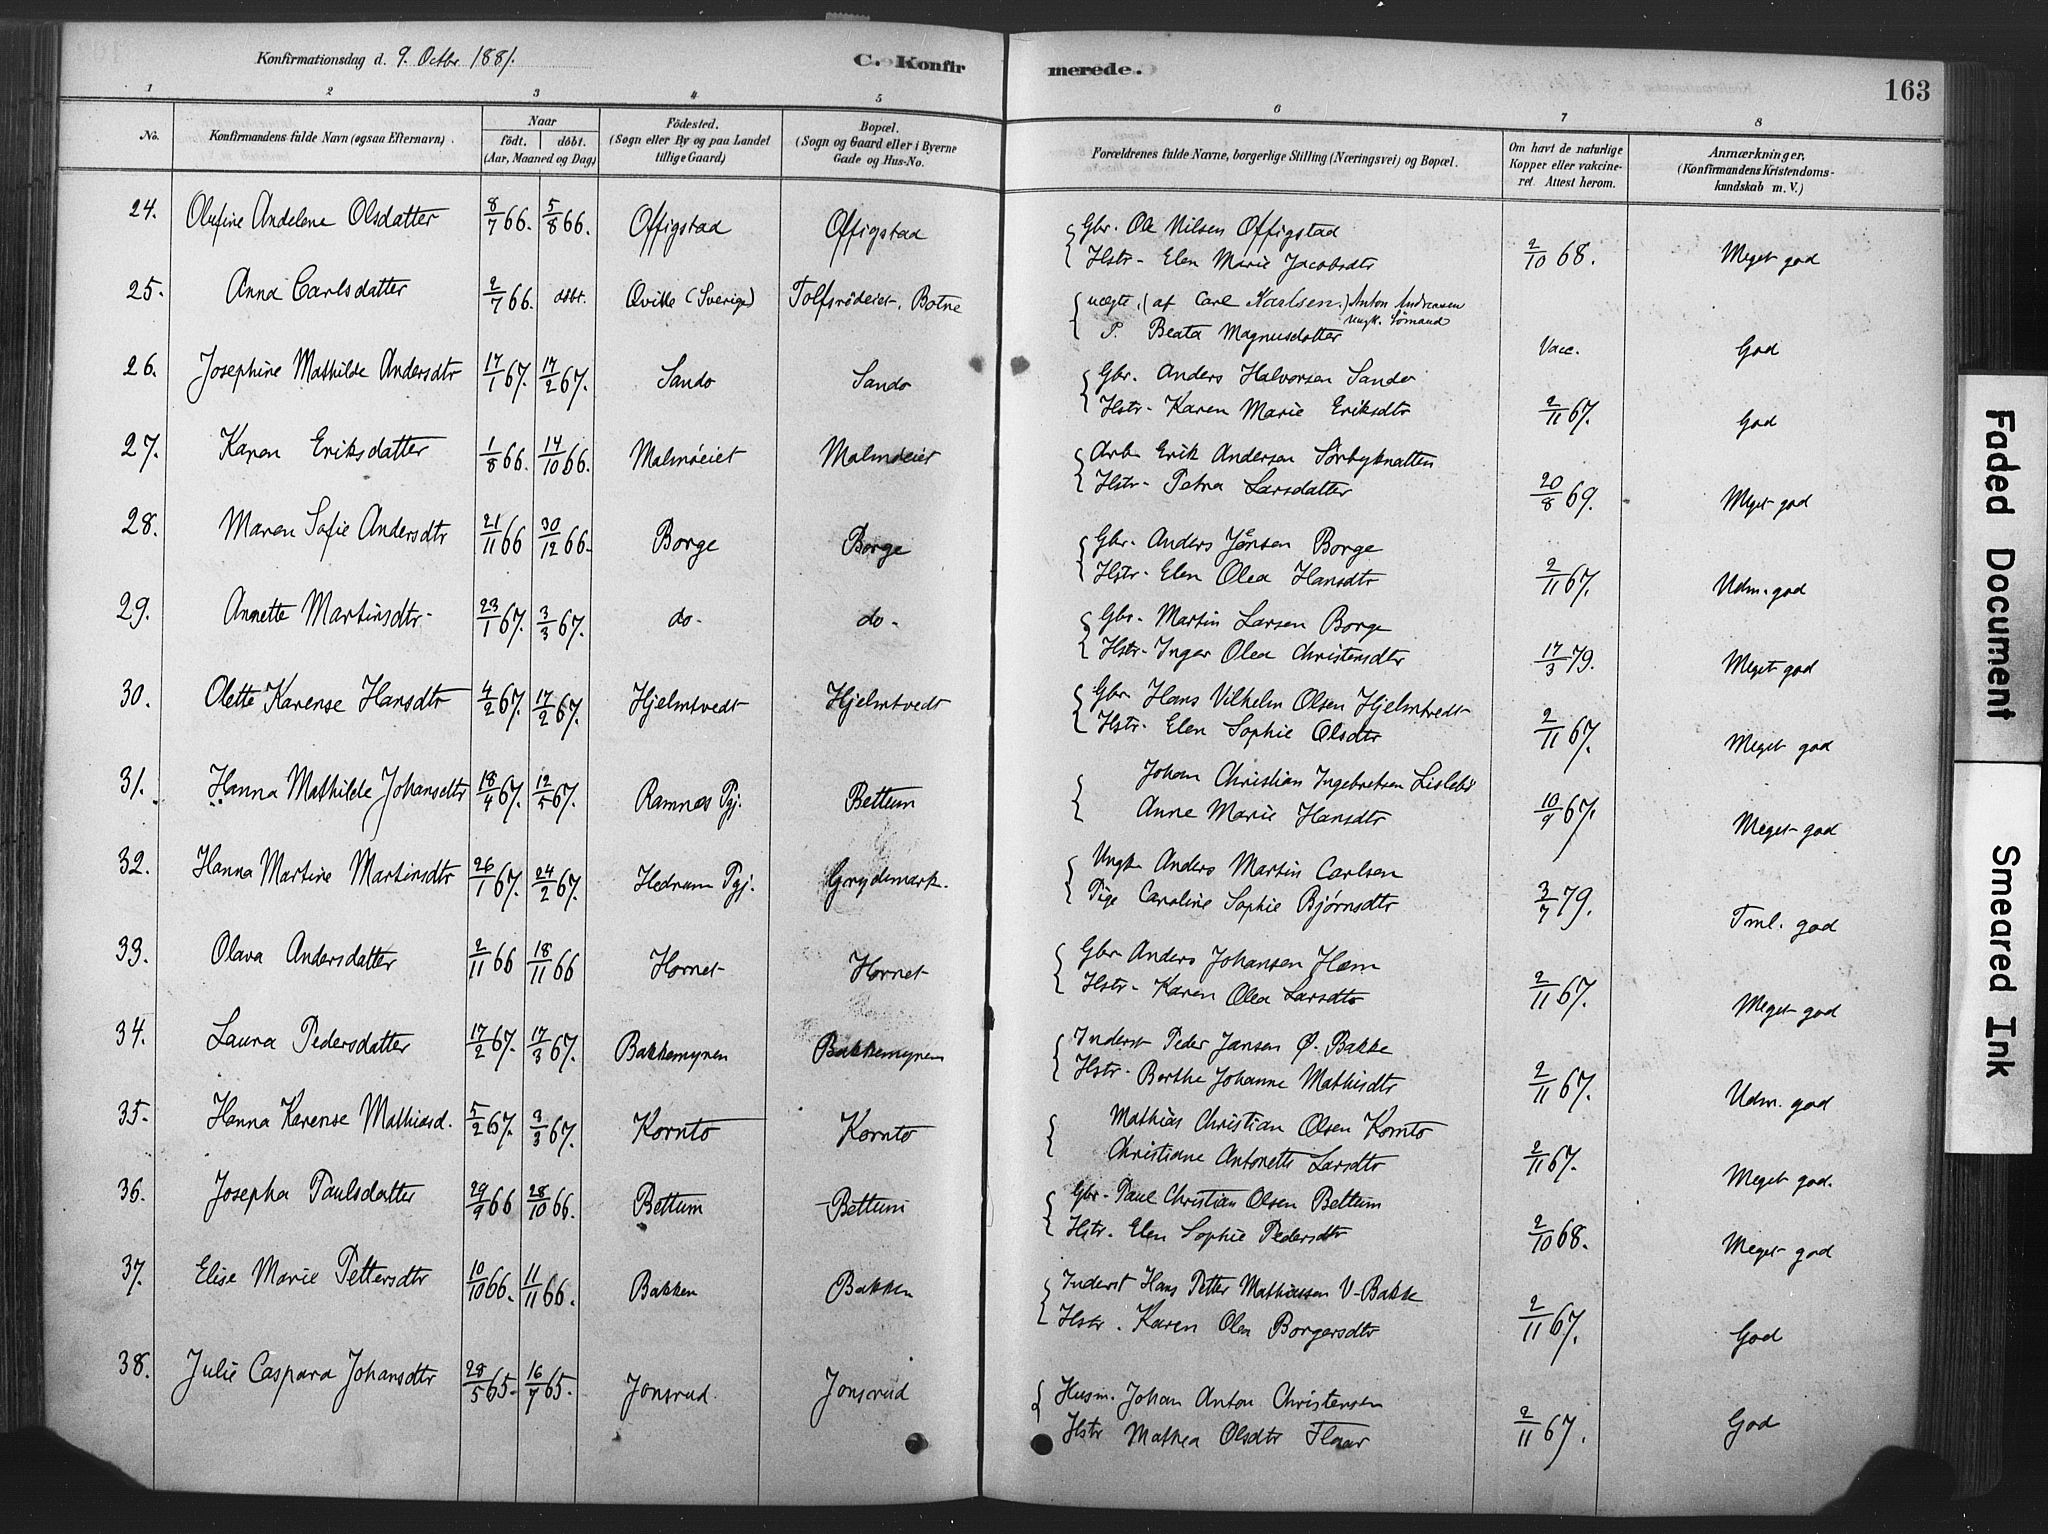 Konfirmationsdag d. 9. Octbr 1881. C. Konfir merede. 163
1 2 3 4 5 6 7 8
No. Konfirmandens fulde Navn (ogsaa Efternavn). Naar födt. döbt. (Aar, Maaned og Dag) Födested. (Sogn eller By og paa Landet tillige Gaard) Bopæl. (Sogn og Gaard eller i Byerne Gade og Hus-No. Forældrenes fulde Navne, borgerlige Stilling (Næringsvei) og Bopæl. Om havt de naturlige Kopper eller vakcineret. Attest herom. Anmærkninger. (Konfirmandens Kristendomskundskab m. V.)
24. Olufine Andelene Olsdatter 8/7 66. 5/8 66. Offigstad Offigstad Gbr. Ole Nilsen Offigstad
Hstr. Elen Marie Jacobsdtr 2/10 68. Meget god
25. Anna Carlsdatter 2/7 66. döbt. Qville (Sverige) Tolfsrödeiet, Botne uægte, (af Carl Karlsen,) Anton Andreasen
P. Beata Magnusdatter ungk. Sømand Vacc. God
26. Josephine Mathilde Andersdtr 17/1 67. 17/2 67. Sando Sando Gbr. Anders Halvorsen Sando
Hstr. Karen Marie Eriksdtr 2/11 67. God
27. Karen Eriksdatter 1/8 66. 14/10 66. Malmöeiet Malmöeiet Arb. Erik Andersen Sörbyknatten
Hstr. Petra Larsdatter 20/8 69. Meget god
28. Maren Sofie Andersdtr 21/11 66 30/12 66. Borge Borge Gbr. Anders Jönsen Borge
Hstr. Elen Olea Hansdtr 2/11 67. Udm. god
29. Annette Martinsdtr 23/1 67. 3/3 67. do. do. Gbr. Martin Larsen Borge
Hstr. Inger Olea Christensdtr 17/3 79. Meget god
30. Olette Karense Hansdtr 4/2 67. 17/2 67. Hjelmtvedt Hjelmtvedt Gbr. Hans Vilhelm Olsen Hjelmtvedt
Hstr. Elen Sophie Olsdtr 2/11 67. Meget god
31. Hanna Mathilde Johansdtr 18/4 67. 12/5 67. Ramnæs Pgj. Bettum Johan Christian Ingebretsen Lislebö
Anne Marie Hansdtr 10/9 67. Meget god
32. Hanna Martine Martinsdtr 26/1 67. 24/2 67. Hedrum Pgj. Grydemark. Ungk. Anders Martin Carlsen
Pige Caroline Sophie Bjørnsdtr 3/7 79. Tml. god
33. Olava Andersdatter 2/11 66 18/11 66 Hornet Hornet Gbr. Anders Johansen Hæm
Hstr. Karen Olea Larsdtr 2/11 67. Meget god
34. Laura Pedersdatter 17/2 67. 17/3 67. Bakkemyren Bakkemyren Inderst Peder Jansen Ø. Bakke
Hstr. Berthe Johanne Mathisdtr 2/11 67. Udm. god
35. Hanna Karense Mathiasd. 5/2 67. 3/3 67. Kornto Kornto Mathias Christian Olsen Kornto
Christiane Antonette Larsdtr 2/11 67. Meget god.
36. Josepha Paulsdatter 29/9 66 28/10 66. Bettum Bettum Gbr. Paul Christian Olsen Bettum
Hstr. Elen Sophie Pedersdtr 2/10 68. Meget god
37. Elise Marie Pettersdtr 10/10 66. 11/11 66. Bakken Bakken Inderst Hans Petter Mathiassen V. Bakke
Hstr. Karen Olea Borgersdtr 2/11 67. God
38. Julie Caspara Johansdtr 28/5 65. 16/7 65. Jonsrud. Jonsrud Husm. Johan Anton Christensen
Hstr Mathea Olsdtr Flaar 2/11 67. God
Faded Document
Smeared Ink